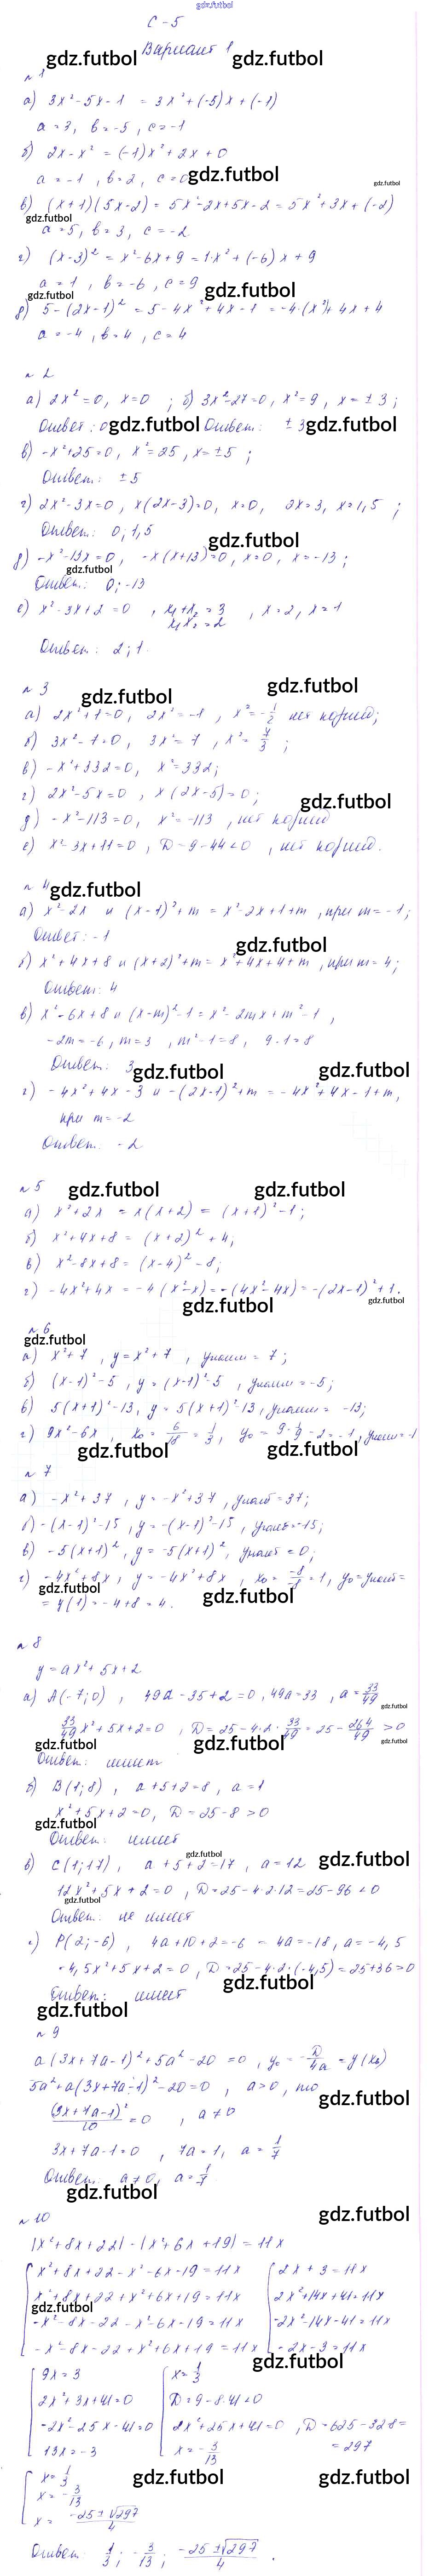 gdz.futbol
С-5
Вариант 1
gdz.futbol gdz.futbol
№1
а) 3x² - 5x - 1 = 3x² + (-5)x + (-1)
a = 3, b = -5, c = -1
б) 2x - x² = (-1)x² + 2x + 0
a = -1, b = 2, c = 0
gdz.futbol
gdz.futbol
в) (x+1)(5x-2) = 5x² - 2x + 5x - 2 = 5x² + 3x + (-2)
gdz.futbol
a = 5, b = 3, c = -2
г) (x-3)² = x² - 6x + 9 = 1·x² + (-6)x + 9
a = 1, b = -6, c = 9
gdz.futbol gdz.futbol
д) 5 - (2x-1)² = 5 - 4x² + 4x - 1 = -4·(x²) + 4x + 4
a = -4, b = 4, c = 4
№ 2
а) 2x² = 0, x = 0 ; б) 3x² - 27 = 0, x² = 9, x = ± 3 ;
Ответ: 0 gdz.futbol Ответ: ± 3 gdz.futbol
в) -x² + 25 = 0, x² = 25, x = ± 5 ;
Ответ: ± 5
г) 2x² - 3x = 0, x(2x-3) = 0, x = 0, 2x = 3, x = 1,5 ;
Ответ: 0; 1,5
gdz.futbol
д) -x² - 13x = 0, -x(x+13) = 0, x = 0, x = -13 ;
gdz.futbol
Ответ: 0; -13
е) x² - 3x + 2 = 0 , x₁ + x₂ = 3 , x = 2, x = 1
x₁x₂ = 2
Ответ: 2; 1
№ 3
gdz.futbol gdz.futbol
а) 2x² + 1 = 0, 2x² = -1 , x² = -1/2 нет корней;
б) 3x² - 7 = 0, 3x² = 7 , x² = 7/3 ;
в) -x² + 332 = 0, x² = 332;
г) 2x² - 5x = 0 , x(2x-5) = 0;
gdz.futbol
д) -x² - 113 = 0, x² = -113 , нет корней
е) x² - 3x + 11 = 0 , D = 9 - 44 < 0 , нет корней.
№ 4 gdz.futbol
а) x² - 2x и (x-1)² + m = x² - 2x + 1 + m , при m = -1 ;
Ответ: -1
gdz.futbol
б) x² + 4x + 8 и (x+2)² + m = x² + 4x + 4 + m , при m = 4;
Ответ: 4
в) x² - 6x + 8 и (x-m)² - 1 = x² - 2mx + m² - 1 ,
-2m = -6, m = 3 , m² - 1 = 8, 9 - 1 = 8
Ответ: 3
gdz.futbol gdz.futbol
г) -4x² + 4x - 3 и -(2x-1)² + m = -4x² + 4x - 1 + m,
при m = -2
Ответ: -2
№ 5 gdz.futbol gdz.futbol
а) x² + 2x = x(x+2) = (x+1)² - 1 ;
б) x² + 4x + 8 = (x+2)² + 4;
в) x² - 8x + 8 = (x-4)² - 8;
г) -4x² + 4x = -4(x²-x) = -(4x²-4x) = -(2x-1)² + 1.
gdz.futbol gdz.futbol
№ 6
gdz.futbol
а) x² + 7 , y = x² + 7 , yнаим = 7 ;
б) (x-1)² - 5 , y = (x-1)² - 5 , yнаим = -5 ;
в) 5(x+1)² - 13, y = 5(x+1)² - 13, yнаим = -13;
г) 9x² - 6x , x₀ = 6/18 = 1/3 , y₀ = 9·1/9 - 2 = -1, yнаим = -1
gdz.futbol gdz.futbol
№ 7
а) -x² + 37 , y = -x² + 37 , yнаиб = 37 ;
б) -(x-1)² - 15 , y = -(x-1)² - 15 , yнаиб = -15 ;
в) -5(x+1)² , y = -5(x+1)² , yнаиб = 0 ;
г) -4x² + 8x , y = -4x² + 8x , x₀ = -8/-8 = 1 , y₀ = yнаиб =
gdz.futbol gdz.futbol
= y(1) = -4 + 8 = 4 .
№ 8
y = ax² + 5x + 2
а) A(-7; 0) , 49a - 35 + 2 = 0 , 49a = 33 , a = 33/49
gdz.futbol
33/49 x² + 5x + 2 = 0 , D = 25 - 4·2·33/49 = 25 - 264/49 > 0
gdz.futbol gdz.futbol gdz.futbol
Ответ: имеет
б) B(1; 8) , a + 5 + 2 = 8 , a = 1
x² + 5x + 2 = 0, D = 25 - 8 > 0
gdz.futbol
Ответ: имеет
gdz.futbol
в) C(1; 17) , a + 5 + 2 = 17 , a = 12 gdz.futbol
12x² + 5x + 2 = 0 , D = 25 - 4·2·12 = 25 - 96 < 0
gdz.futbol
Ответ: не имеет
г) P(2; -6) , 4a + 10 + 2 = -6 - 4a = -18, a = -4,5
-4,5x² + 5x + 2 = 0 , D = 25 - 4·2·(-4,5) = 25 + 36 > 0
gdz.futbol
Ответ: имеет
gdz.futbol
№ 9
a(3x + 7a - 1)² + 5a² - 20 = 0 , y₀ = -D/4a = y(x₀)
5a² + a(3x+7a-1)² - 20 = 0 , a > 0 , то
gdz.futbol
(3x+7a-1)²/10 = 0 , a ≠ 0
3x + 7a - 1 = 0 , 7a = 1, a = 1/7
Ответ: a ≠ 0, a = 1/7
gdz.futbol
№ 10 gdz.futbol
|x² + 8x + 22| - |x² + 6x + 19| = 11x
x² + 8x + 22 - x² - 6x - 19 = 11x 2x + 3 = 11x
x² + 8x + 22 + x² + 6x + 19 = 11x 2x² + 14x + 41 = 11x
gdz.futbol
-x² - 8x - 22 - x² - 6x - 19 = 11x -2x² - 14x - 41 = 11x
-x² - 8x - 22 + x² + 6x + 19 = 11x -2x - 3 = 11x
gdz.futbol
9x = 3 x = 1/3
2x² + 3x + 41 = 0 D = 9 - 8·41 < 0
-2x² - 25x - 41 = 0 2x² + 25x + 41 = 0 , D = 625 - 328 =
13x = -3 x = -3/13 = 297
x = 1/3
gdz.futbol gdz.futbol
x = -3/13
x = -25 ± √297/4
Ответ: 1/3 ; -3/13 ; -25 ± √297/4 .